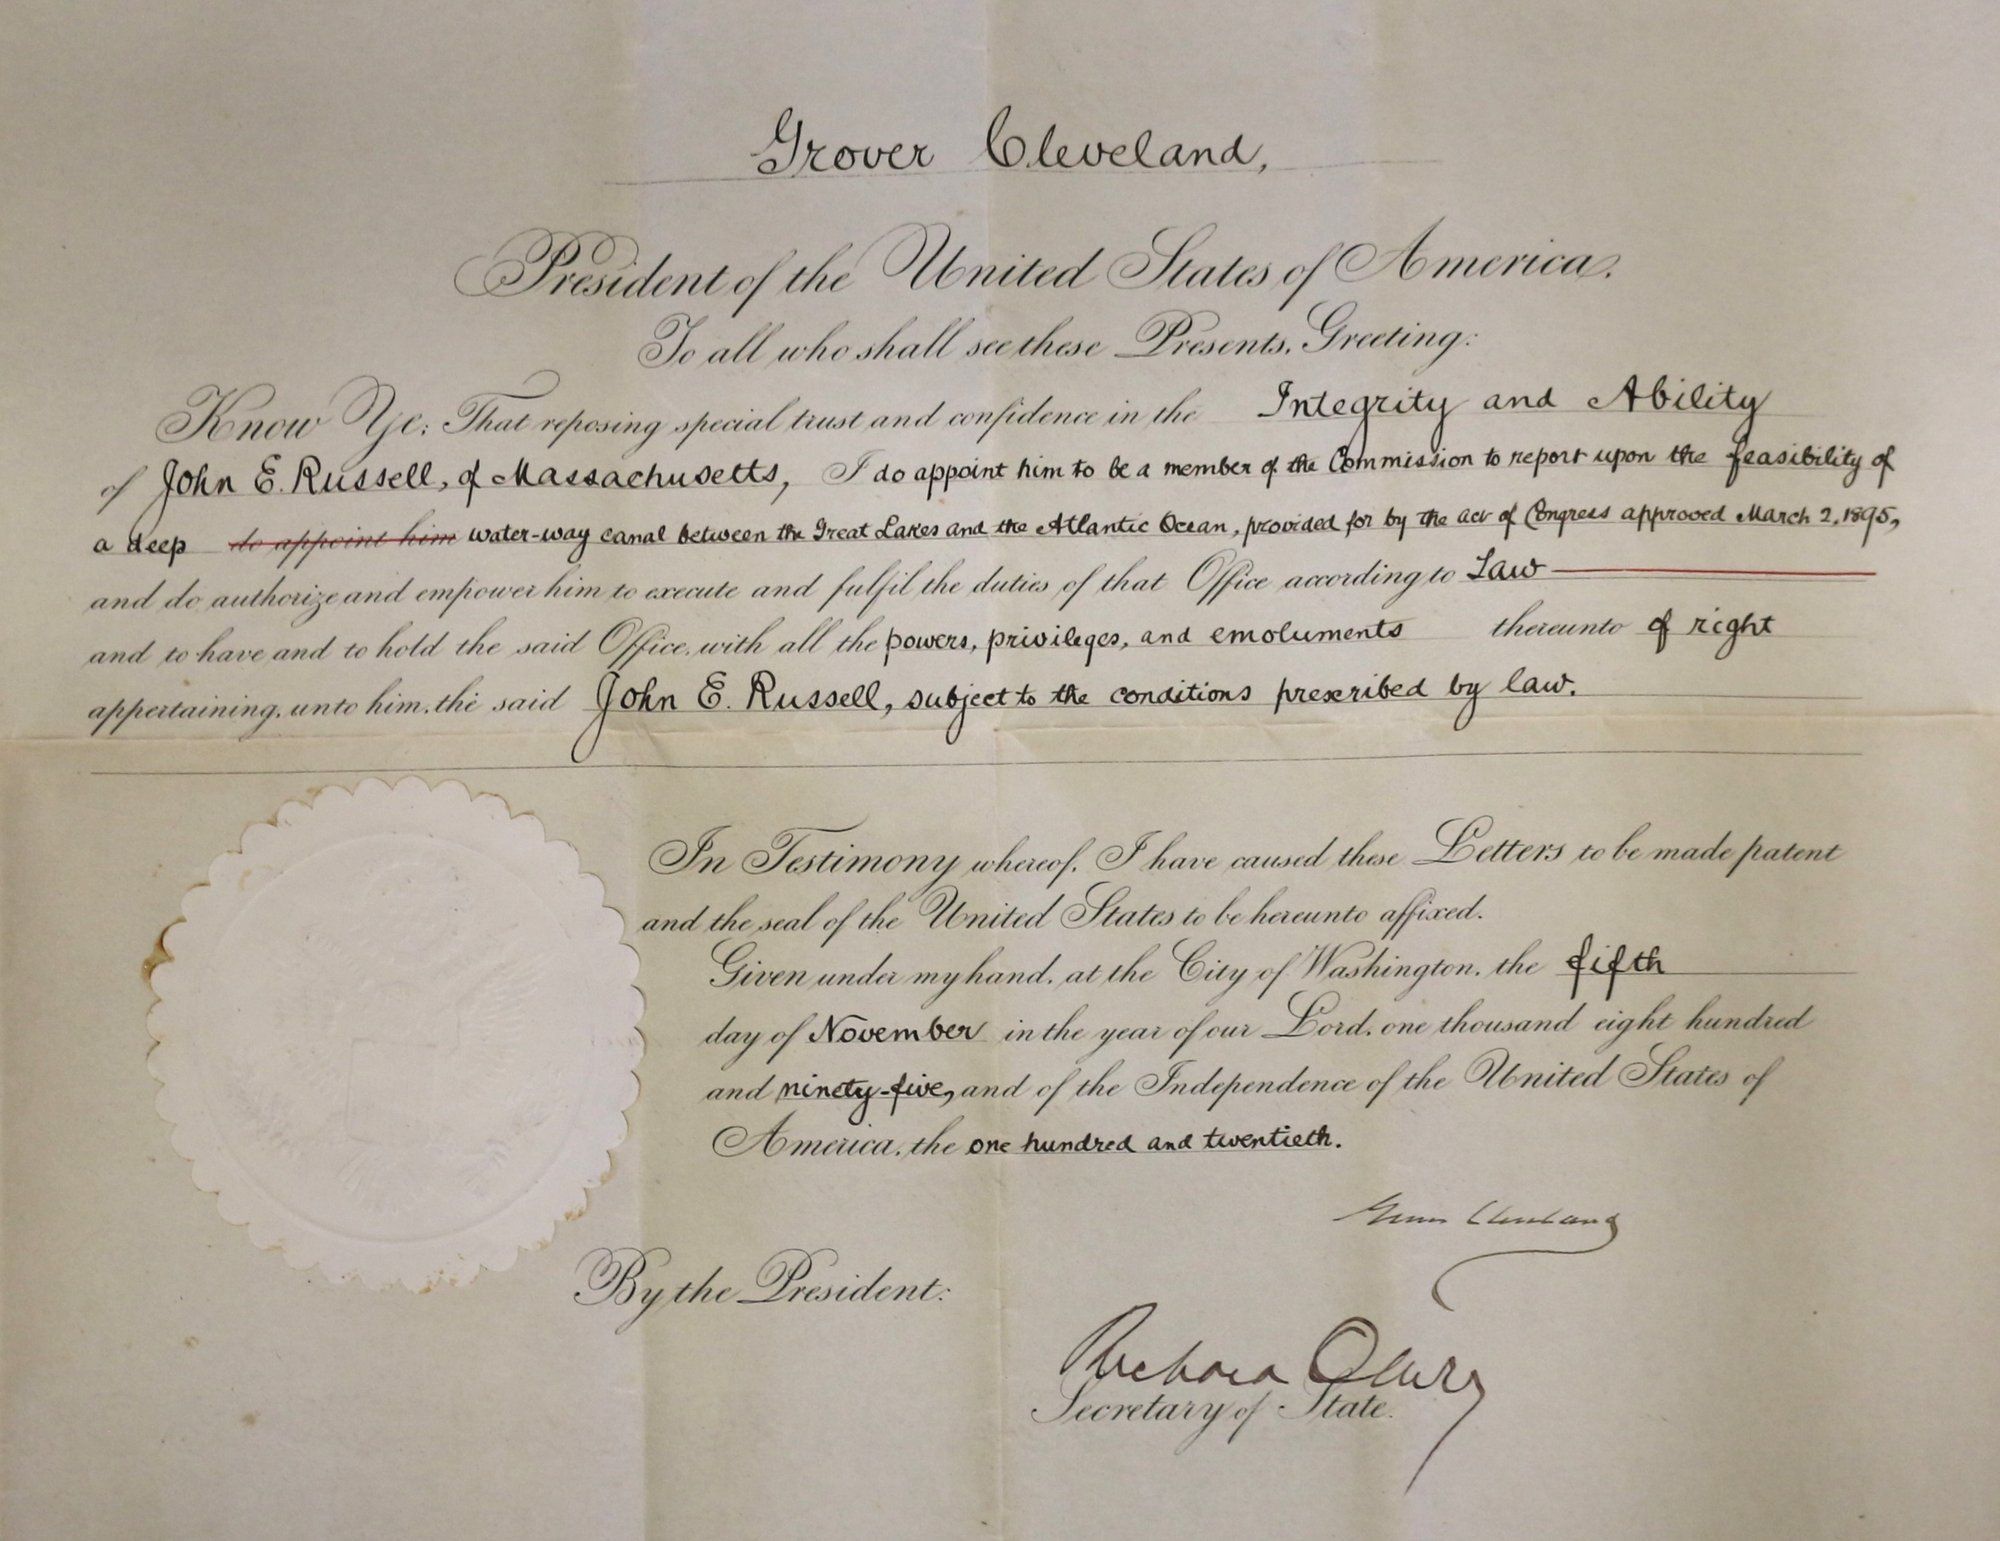 Grover Cleveland,
President of the United States of America.
To all who shall see these Presents, Greeting:
Know Ye; That reposing special trust and confidence in the Integrity and Ability
of John E. Russell, of Massachusetts, I do appoint him to be a member of the Commission to report upon the feasibility of
a deep do appoint him water-way canal between the Great Lakes and the Atlantic Ocean, provided for by the act of Congress approved March 2, 1895,
and do authorize and empower him to execute and fulfil the duties of that Office according to Law
and to have and to hold the said Office, with all the powers, privileges, and emoluments thereunto of right
appertaining, unto him, the said John E. Russell, subject to the conditions prescribed by law.
In Testimony whereof, I have caused these Letters to be made patent
and the seal of the United States to be hereunto affixed.
Given under my hand, at the City of Washington, the fifth
day of November in the year of our Lord, one thousand eight hundred
and ninety-five, and of the Independence of the United States of
America, the one hundred and twentieth.
Grover Cleveland
By the President:
Richard Olney
Secretary of State.